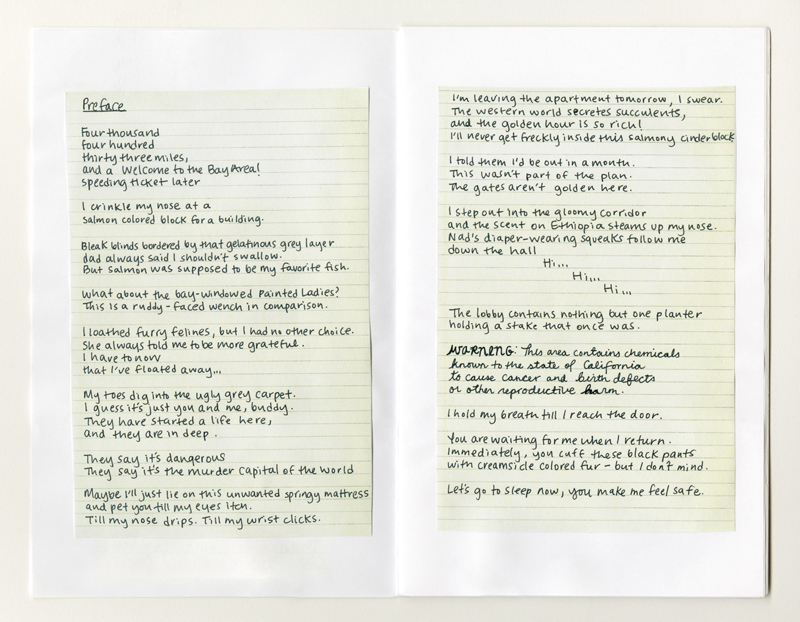 Preface
Four thousand
four hundred
thirty three miles,
and a Welcome to the Bay Area!
speeding ticket later
I crinkle my nose at a
salmon colored block for a building.
Bleak blinds bordered by that gelatinous grey layer
dad always said I shouldn't swallow.
But salmon was supposed to be my favorite fish.
What about the bay-windowed Painted Ladies?
This is a ruddy-faced wench in comparison.
I loathed furry felines, but I had no other choice.
She always told me to be more grateful.
I have to now
that I've floated away...
My toes dig into the ugly grey carpet.
I guess it's just you and me, buddy.
They have started a life here,
and they are in deep.
They say it's dangerous
They say it's the murder capital of the world
Maybe I'll just lie on this unwanted springy mattress
and pet you till my eyes itch.
Till my nose drips. Till my wrist clicks.
I'm leaving the apartment tomorrow, I swear.
The western world secretes succulents,
and the golden hour is so rich!
I'll never get freckly inside this salmony cinderblock
I told them I'd be out in a month.
This wasn't part of the plan.
The gates aren't golden here.
I step out into the gloomy corridor
and the scent on Ethiopia steams up my nose.
Nad's diaper-wearing squeaks follow me
down the hall
Hi...
Hi...
Hi...
The lobby contains nothing but one planter
holding a stake that once was.
WARNENG: This area contains chemicals
known to the state of California
to cause cancer and birth defects
or other reproductive harm.
I hold my breath till I reach the door.
You are waiting for me when I return.
Immediately, you cuff these black pants
with creamsicle colored fur - but I don't mind.
Let's go to sleep now, you make me feel safe.